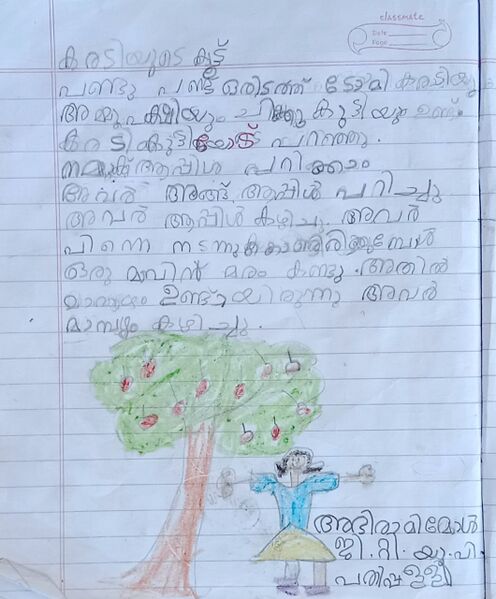 classmate
Date
Page
കരടിയുടെ കൂട്ട്
പണ്ടു പണ്ട് ഒരിടത്ത് ടോമി കരടിയും
അമ്മു പക്ഷിയും ചിക്കു കുട്ടിയും ഉണ്ട്
കരടി കുട്ടിയോട് പറഞ്ഞു.
നമുക്ക് ആപ്പിൾ പറിക്കാം
അവർ അങ്ങ് ആപ്പിൾ പറിച്ചു
അവർ ആപ്പിൾ കഴിച്ചു. അവർ
പിന്നെ നടന്നു
ഒരു മാവിൻ മരം കണ്ടു. അതിൽ
ഉണ്ടായിരുന്നു അവർ
മാമ്പഴം കഴിച്ചു.
അഭിരാമിമോൾ
ജി. റ്റി. യു. പി.